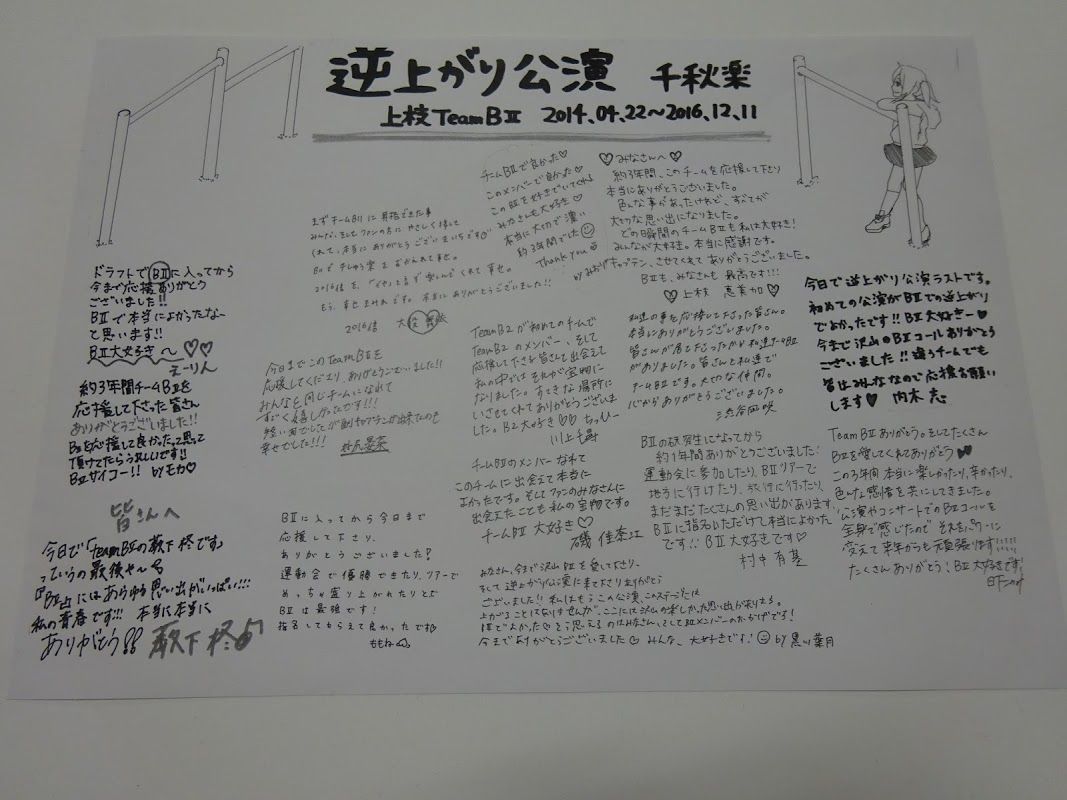 逆上がり公演 千秋楽
上枝 TeamBⅡ 2014.04.22〜2016.12.11
チームBⅡで良かった♡
このメンバーで良かった♡
このBⅡを好きでいてくれる
みなさんも大好き♡
本当に大切で濃い
約3年間でした
Thank you
by
♡みなさんへ♡
約3年間、このチームを応援して下さり
本当にありがとうございました。
色んな事があったけれど、すべてが
大切な思い出になりました。
どの瞬間のチームBⅡも私は大好き!
みんなが大好き。本当に感謝です。
キャプテン、させてくれてありがとうございました。
BⅡも、みなさんも最高です!!!
♡上枝 恵美加♡
まずチームBⅡに昇格できた事
くれて、本当にありがとうございました
もう、幸せまみれです。本当にありがとうございました!!
ドラフトでBⅡに入ってから
今まで応援ありがとう
ございました!!
BⅡで本当によかったな〜
と思います!!
BⅡ大好き〜♡♡
えーりん
約3年間チームBⅡを
応援して下さった皆さん
ありがとうございました!!
BⅡを応援して良かったって思って
頂けてたらうれしいです!!
BⅡサイコー!! by モカ♡
皆さんへ
今日で「TeamBⅡの薮下柊です」
っていうの最後や〜
BⅡにはあらゆる思い出がいっぱい!!!
私の青春です!!! 本当に本当に
ありがとう!! 薮下柊
今日までこのTeamBⅡを
応援してくださり、ありがとうございました!!
みんなと同じチームになれて
すごく嬉しかったです!!!
幸せでした!!!
BⅡに入ってから今日まで
応援して下さり、
ありがとうございました!
運動会で優勝できたり、ツアーで
めっちゃ盛り上がれたりと
BⅡは最強です!
指名してもらえて良かったです
ももね
TeamB2が初めてのチームで
TeamB2のメンバー、そして
応援して下さる皆さんに出会えて
私の中ではそれが宝物に
なりました。すてきな場所に
いさせてくれてありがとうございま
した。B2大好き♡♡ ちっひー
川上千尋
チームBⅡのメンバーになれて
このチームに出会えて本当に
よかったです。そしてファンのみなさんに
出会えたことも私の宝物です。
チームBⅡ大好き♡
磯 佳奈江
私達の事を応援して下さった皆さん。
本当にありがとうございました。
皆さんが居て下さったから私達チームBⅡ
がありました。皆さんと私達で
チームBⅡです。大切な仲間。
心からありがとうございました。
渋谷凪咲
BⅡの研究生になってから
約1年間ありがとうございました!
運動会に参加したり、BⅡツアーで
地方に行けたり、旅行に行ったり、
まだまだたくさんの思い出があります
BⅡに指名いただけて本当によかった
です!! BⅡ大好きです♡
村中有基
みなさん、今まで沢山BⅡを愛して下さり、
そして逆上がり公演に来て下さりありがとう
ございました!! 私はもうこの公演、このステージには
上がることはありませんが、ここには沢山の楽しかった思い出があります。
今までありがとうございました みんな、大好きです! by 黒川葉月
今日で逆上がり公演ラストです。
初めての公演がBⅡでの逆上がり
でよかったです!! BⅡ大好きー♡
今まで沢山のBⅡコールありがとう
ございました!! 違うチームでも
皆はみんななので応援お願い
します♡ 内木志
TeamBⅡありがとう。そしてたくさん
BⅡを愛してくれてありがとう
この3年間本当に楽しかったり、辛かったり、
色んな感情を共にしてきました。
公演やコンサートでのBⅡコールを
全身で感じたので それをパワーに
変えて来年からも頑張ります!!!!!
たくさんありがとう! BⅡ大好きです!